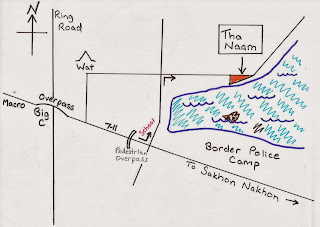 N
Ring
Road
Wat
Tha
Naam
Macro
Overpass
Big
C
7-11
School
Pedestrian
Overpass
Border Police
Camp
To Sakhon Nakhon